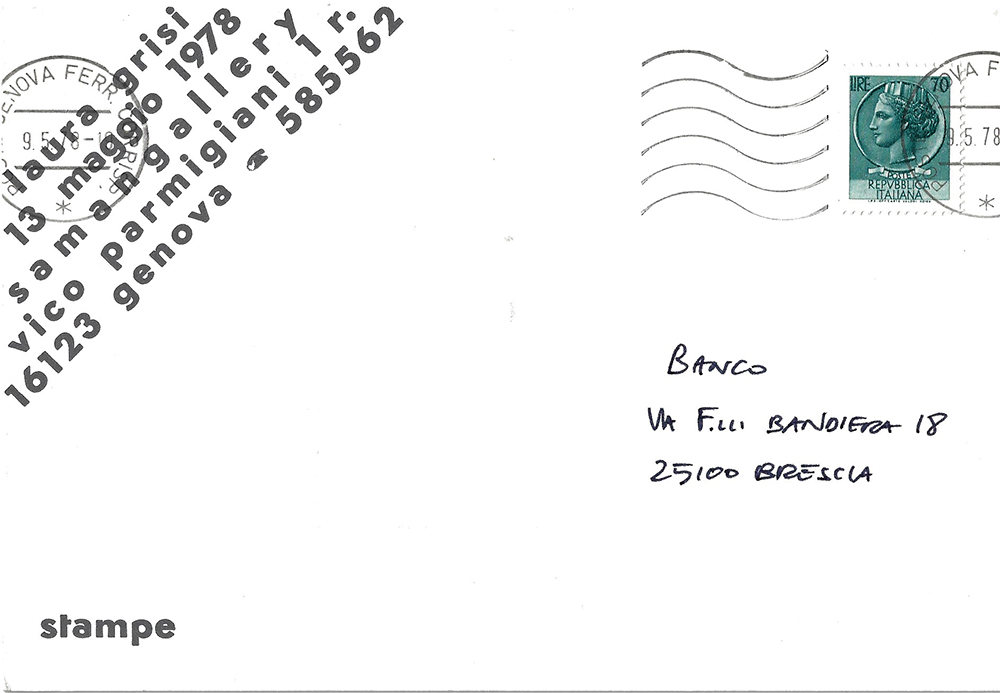 laura grisi
13 maggio 1978
samangallery
vico parmigiani 1 r.
16123 genova ☎ 585562
GENOVA FERR. CORRISP.
9.5.78-1
LIRE 70
POSTE
REPVBBLICA
ITALIANA
OVA F
9.5.78
BANCO
VIA F.lli BANDIERA 18
25100 BRESCIA
stampe